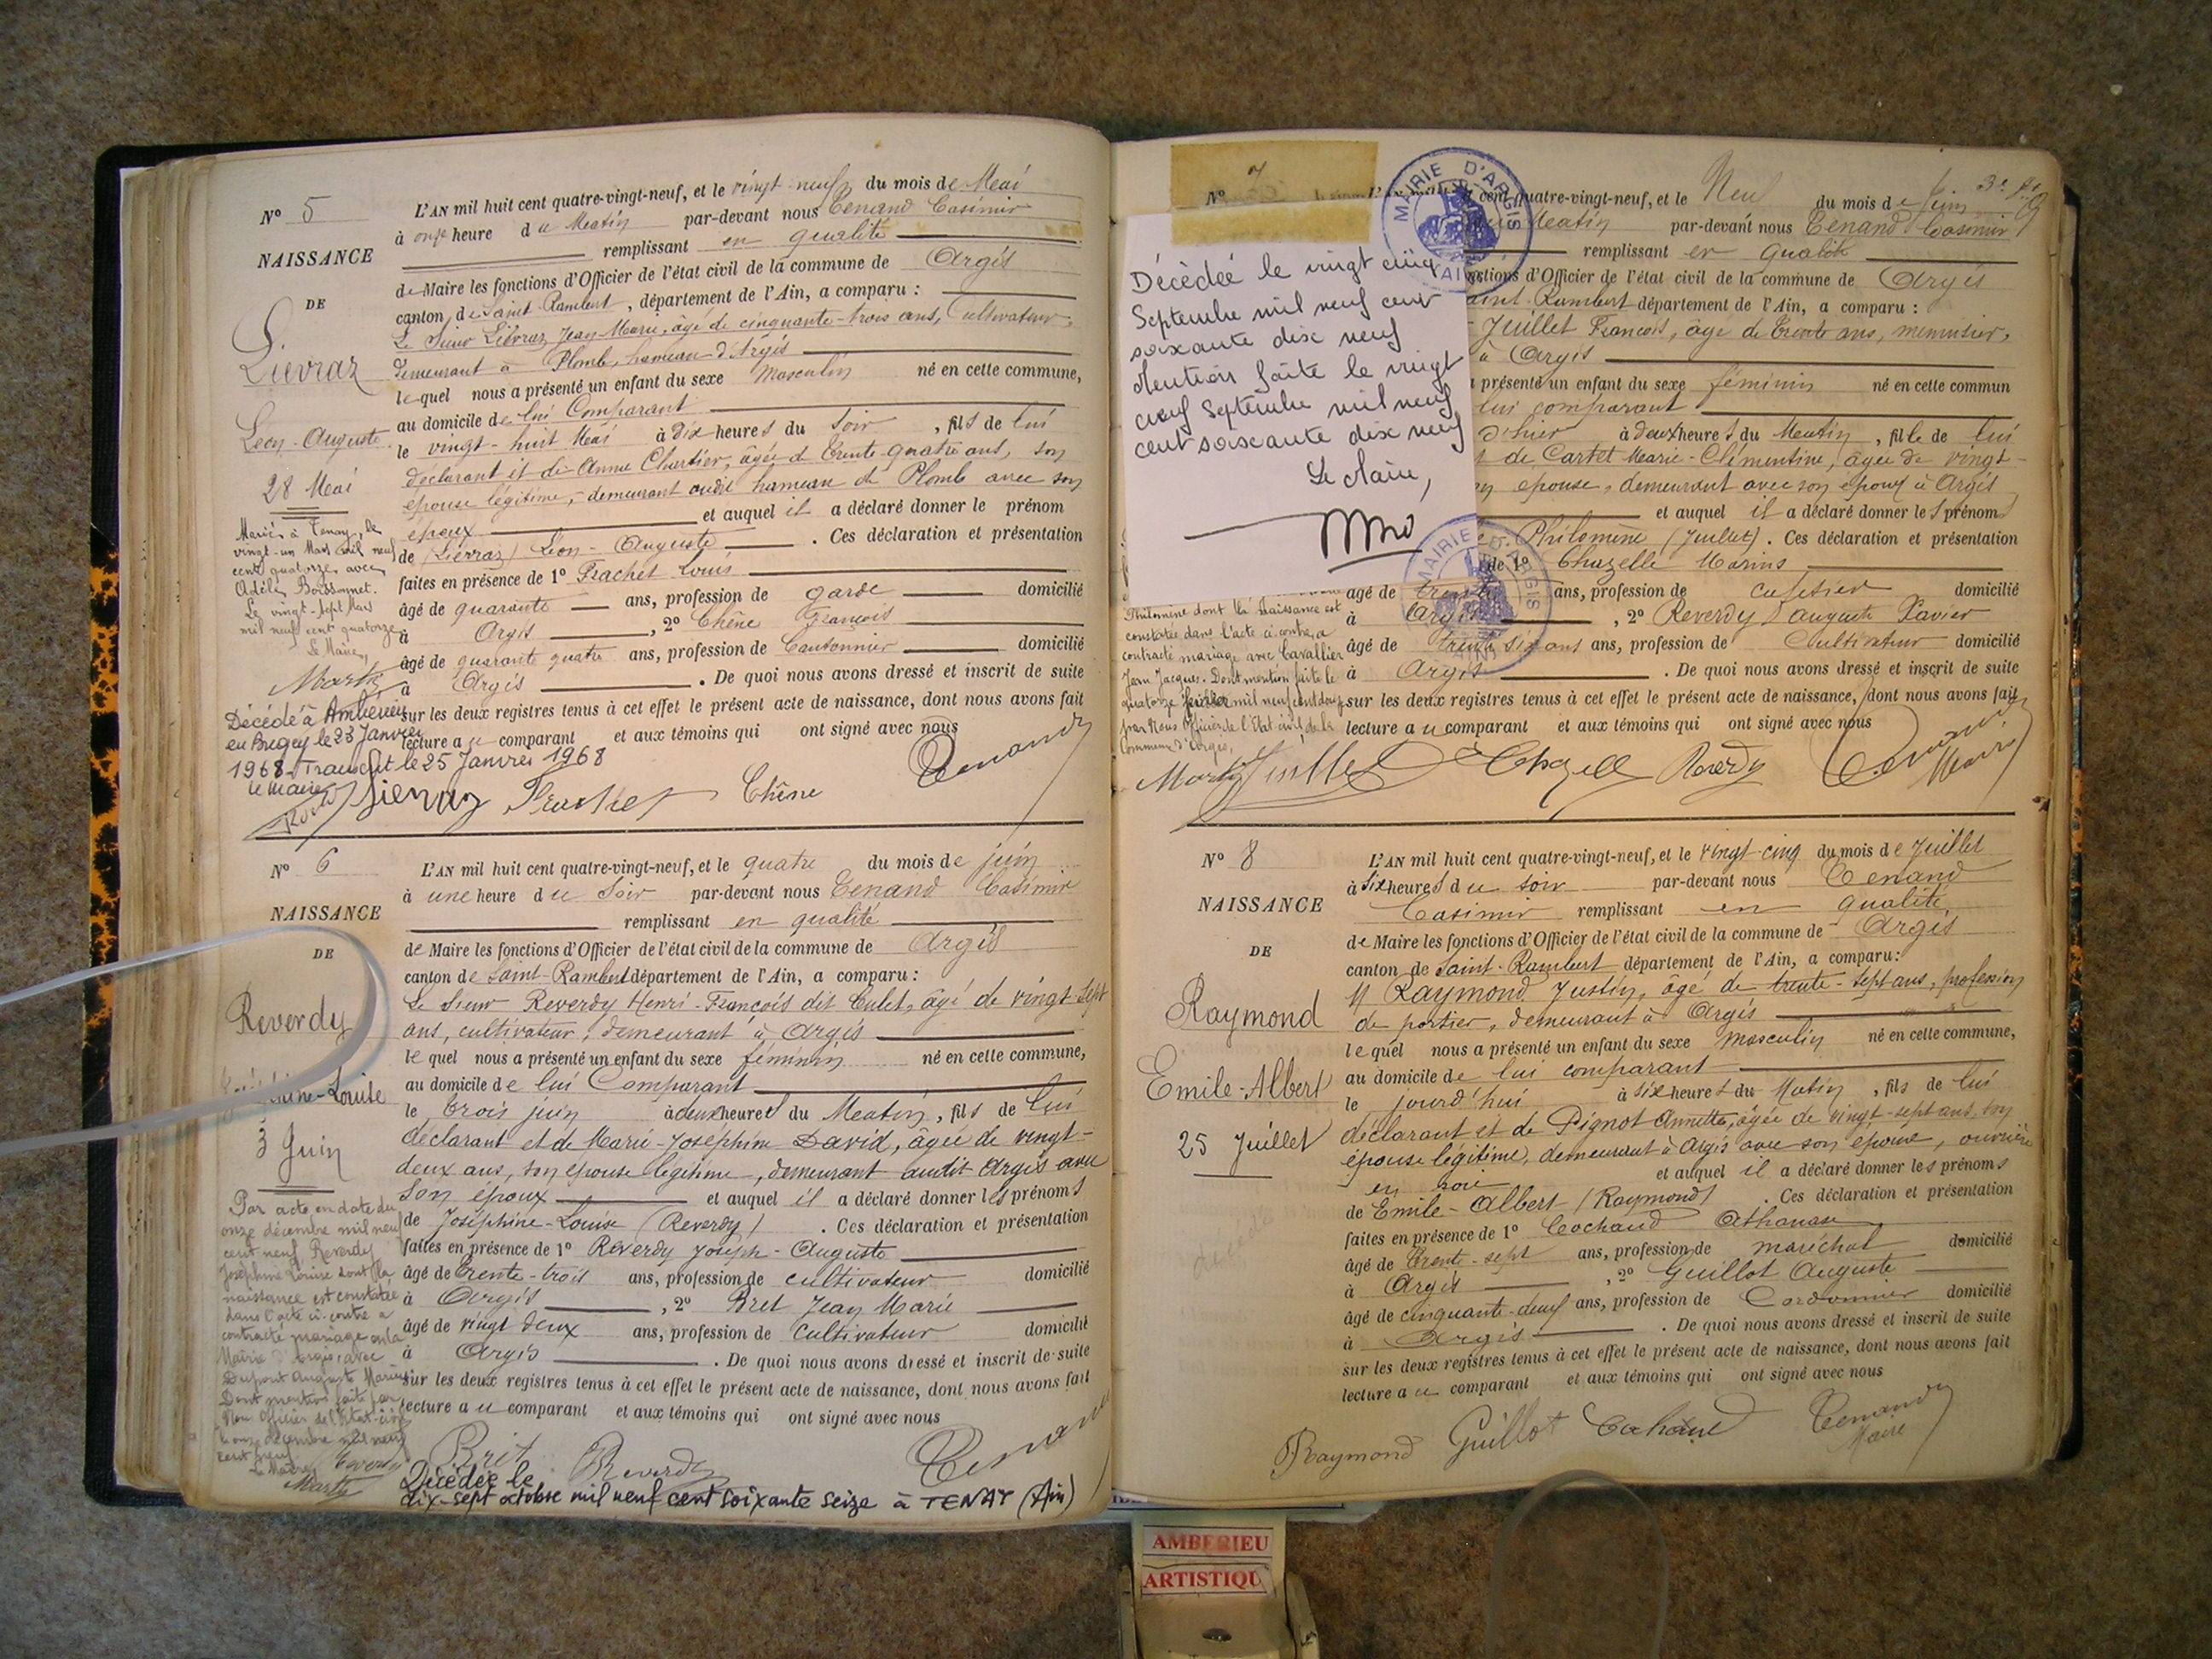 N° 5
NAISSANCE
DE
Liévraz
Léon-Auguste
28 Mai
Marié à Tenay, le
vingt-un Mars mil neuf
cent quatorze avec
Adèle Boissonnet.
Le vingt-sept Mars
mil neuf cent quatorze
Le Maire,
Décédé à Ambérieu
en Bugey le 23 Janvier
1968. Transcrit le 25 Janvier 1968
Le Maire
L'AN mil huit cent quatre-vingt-neuf, et le vingt-neuf du mois de Mai
à onze heure du Matin par-devant nous Tenand Casimir
remplissant en qualité
de Maire les fonctions d'Officier de l'état civil de la commune de Argis
canton de Saint-Rambert, département de l'Ain, a comparu :
Le Sieur Liévraz, Jean-Marie, âgé de cinquante-trois ans, Cultivateur,
demeurant à Plomb, hameau d'Argis
lequel nous a présenté un enfant du sexe Masculin né en cette commune,
au domicile de lui Comparant
le vingt-huit Mai à dix heures du Soir, fils de lui
déclarant et de Anne Chartier, âgée de trente-quatre ans, son
épouse légitime, demeurant audit hameau de Plomb avec son
époux et auquel il a déclaré donner le prénom
de (Liévraz) Léon-Auguste. Ces déclaration et présentation
faites en présence de 1° Frachet Louis
âgé de quarante ans, profession de garde domicilié
à Argis, 2° Chêne François
âgé de quarante quatre ans, profession de Cantonnier domicilié
à Argis. De quoi nous avons dressé et inscrit de suite
sur les deux registres tenus à cet effet le présent acte de naissance, dont nous avons fait
lecture au comparant et aux témoins qui ont signé avec nous
Frachet Chêne Tenand
N° 6
NAISSANCE
DE
Reverdy
Louise
3 Juin
Par acte en date du
onze décembre mil neuf
cent neuf Reverdy
Joséphine Louise dont la
naissance est constatée
dans l'acte ci-contre a
contracté mariage en la
Mairie d'Argis, avec
Dupont Auguste Marius
Dont mention faite par
Nous Officier de l'Etat-civil
le onze décembre mil neuf
cent neuf
Le Maire
L'AN mil huit cent quatre-vingt-neuf, et le quatre du mois de juin
à une heure du Soir par-devant nous Tenand Casimir
remplissant en qualité
de Maire les fonctions d'Officier de l'état civil de la commune de Argis
canton de Saint-Rambert département de l'Ain, a comparu :
Le Sieur Reverdy Henri-François dit Culet, âgé de vingt-sept
ans, cultivateur, demeurant à Argis
lequel nous a présenté un enfant du sexe féminin né en cette commune,
au domicile de lui Comparant
le trois juin à deux heures du Matin, fils de lui
déclarant et de Marie-Joséphine David, âgée de vingt-
deux ans, son épouse légitime, demeurant audit Argis avec
son époux et auquel il a déclaré donner les prénoms
de Joséphine-Louise (Reverdy). Ces déclaration et présentation
faites en présence de 1° Reverdy Joseph-Auguste
âgé de trente-trois ans, profession de cultivateur domicilié
à Argis, 2° Bret Jean Marie
âgé de vingt deux ans, profession de cultivateur domicilié
à Argis. De quoi nous avons dressé et inscrit de suite
sur les deux registres tenus à cet effet le présent acte de naissance, dont nous avons fait
lecture au comparant et aux témoins qui ont signé avec nous
Bret Reverdy Tenand
Décédée le
dix-sept octobre mil neuf cent soixante seize à TENAY (Ain)
N° 7
MAIRIE D'ARGIS
AIN
Décédée le vingt cinq
Septembre mil neuf cent
soixante dix neuf
Mention faite le vingt
neuf Septembre mil neuf
cent soixante dix neuf
Le Maire,
MAIRIE D'ARGIS
AIN
Philomène dont la naissance est
constatée dans l'acte ci-contre, a
contracté mariage avec Cavallier
Jean Jacques. Dont mention faite le
quatorze mil neuf cent douze
par Nous Officier de l'Etat civil de la
Commune d'Argis,
cent quatre-vingt-neuf, et le Neuf du mois de juin
Matin par-devant nous Tenand Casimir
remplissant en qualité
fonctions d'Officier de l'état civil de la commune de Argis
Saint-Rambert département de l'Ain, a comparu :
Juillet François, âgé de trente ans, menuisier,
à Argis
présenté un enfant du sexe féminin né en cette commun
lui comparant
d'hier à deux heures du Matin, fille de lui
de Cartet Marie-Clémentine, âgée de vingt-
épouse, demeurant avec son époux à Argis
et auquel il a déclaré donner les prénoms
Philomène (Juillet). Ces déclaration et présentation
de 1° Chazelle Marius
âgé de trente ans, profession de domicilié
à Argis, 2° Reverdy Auguste Xavier
âgé de trente six ans ans, profession de Cultivateur domicilié
à Argis. De quoi nous avons dressé et inscrit de suite
sur les deux registres tenus à cet effet le présent acte de naissance, dont nous avons fait
lecture au comparant et aux témoins qui ont signé avec nous
Juillet Chazelle Reverdy Tenand
Maire
N° 8
NAISSANCE
DE
Raymond
Emile-Albert
25 Juillet
L'AN mil huit cent quatre-vingt-neuf, et le vingt-cinq du mois de Juillet
à six heures du soir par-devant nous Tenand
Casimir remplissant en qualité
de Maire les fonctions d'Officier de l'état civil de la commune de Argis
canton de Saint-Rambert département de l'Ain, a comparu:
Raymond Justin, âgé de trente-sept ans, profession
de portier, demeurant à Argis
lequel nous a présenté un enfant du sexe masculin né en cette commune,
au domicile de lui comparant
le jourd'hui à six heures du Matin, fils de lui
déclarant et de Pignot Annette, âgée de vingt-sept ans, son
épouse légitime, demeurant à Argis avec son époux, ouvrière
en soie et auquel il a déclaré donner les prénoms
de Emile-Albert (Raymond). Ces déclaration et présentation
faites en présence de 1° Cochaud Athanase
âgé de trente-sept ans, profession de maréchal domicilié
à Argis, 2° Guillot Auguste
âgé de cinquante-deux ans, profession de Cordonnier domicilié
à Argis. De quoi nous avons dressé et inscrit de suite
sur les deux registres tenus à cet effet le présent acte de naissance, dont nous avons fait
lecture au comparant et aux témoins qui ont signé avec nous
Raymond Guillot Cochaud Tenand
Maire
AMBERIEU
ARTISTIQU